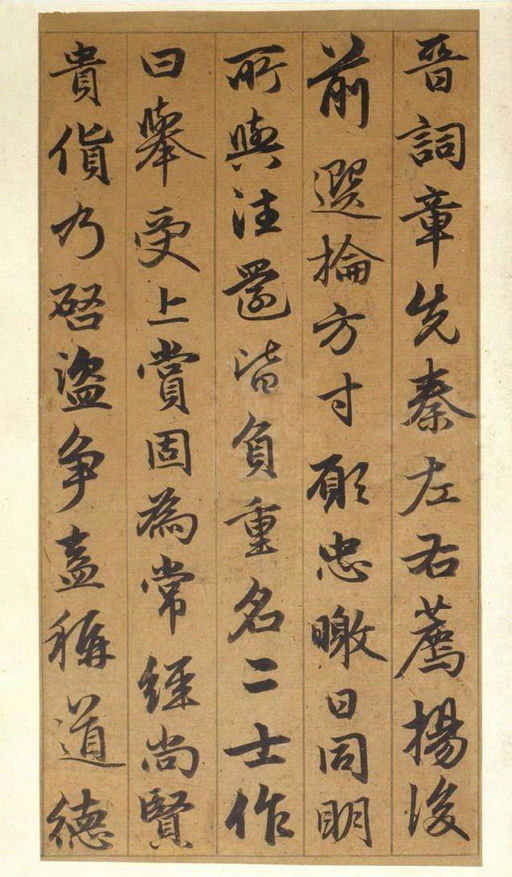 晋詞章先秦左右薦揚後
前選掄方寸願忠曒日同明
所與往還皆負重名二士作
曰舉受上賞固為常經尚賢
貴貨乃啓盜争盍稱道德